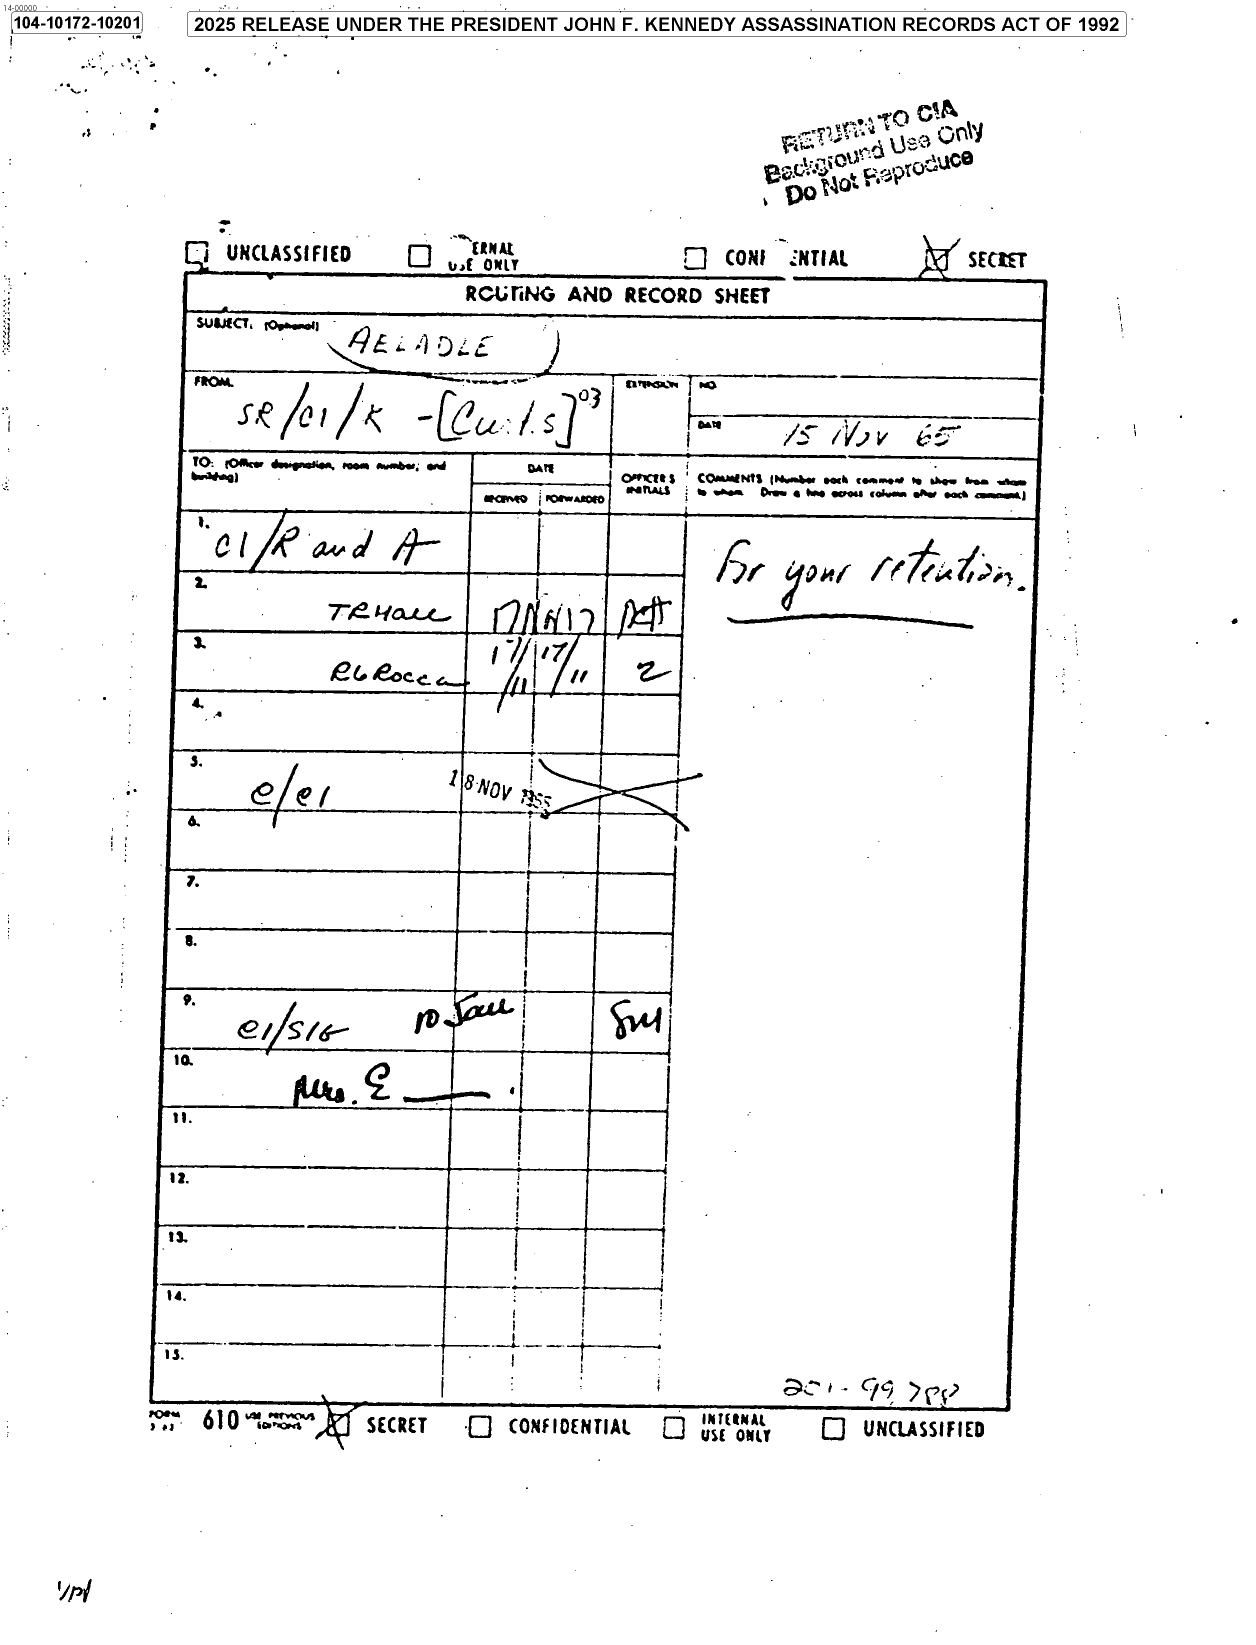 14-00000
104-10172-10201
2025 RELEASE UNDER THE PRESIDENT JOHN F. KENNEDY ASSASSINATION RECORDS ACT OF 1992
RETURN TO CIA
Background Use Only
Do Not Reproduce
UNCLASSIFIED ERNAL USE ONLY CONF ENTIAL SECRET
ROUTING AND RECORD SHEET
SUBJECT: (Optional) AELADLE
FROM: EXTENSION NO.
SR/CI/K - [Curtis] 03
DATE 15 Nov 65
TO: (Officer designation, room number, and building) DATE OFFICER'S INITIALS COMMENTS (Number each comment to show from whom to whom. Draw a line across column after each comment.)
RECEIVED FORWARDED
1. CI/R and A
For your retention.
2. TRHall
3. RG Rocca 17/11 17/11 2
4.
5. C/CI 18 NOV
6.
7.
8.
9. CI/SIG 10 Jan
10. Mrs. E
11.
12.
13.
14.
15.
FORM 610 USE PREVIOUS EDITIONS SECRET CONFIDENTIAL INTERNAL USE ONLY UNCLASSIFIED